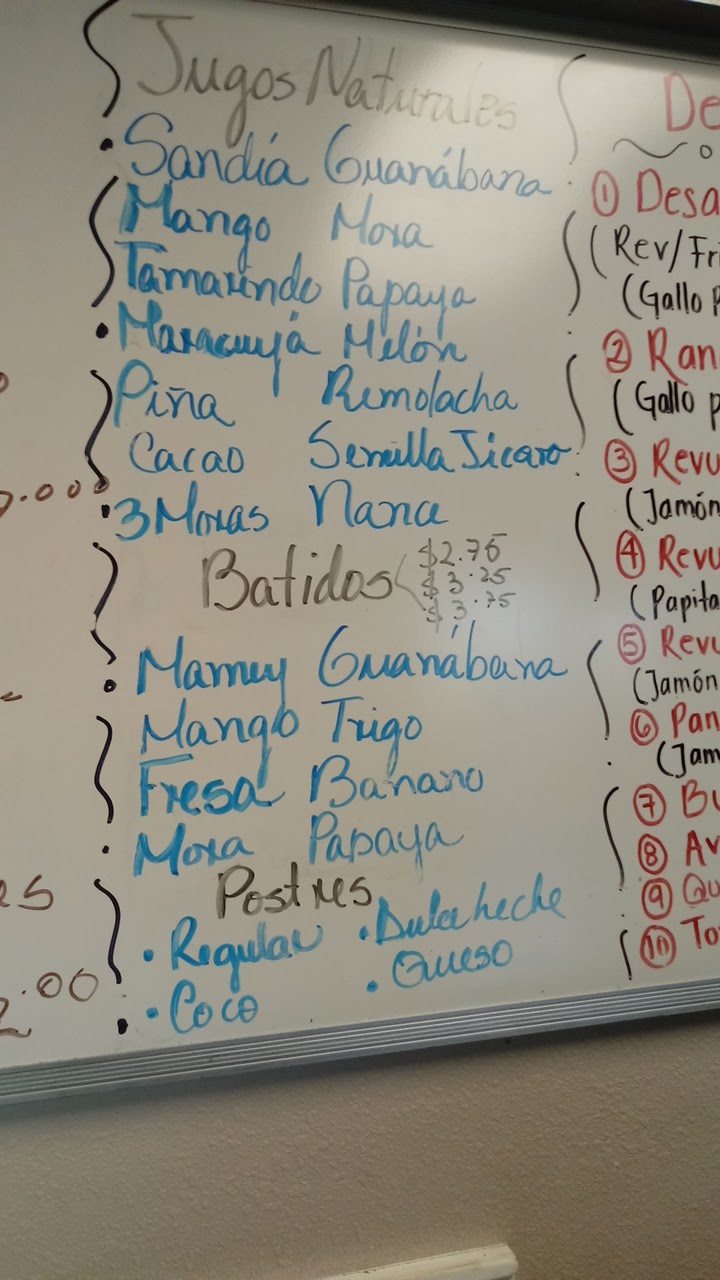 Jugos Naturales
Sandía Guanábana
Mango Mora
Tamarindo Papaya
Maracuyá Melón
Piña Remolacha
Cacao Semilla Jicaro
3 Moras Nana
Batidos $2.75
$3.25
$3.75
Mamey Guanábana
Mango Trigo
Fresa Banano
Mora Papaya
Postres
Regular Dulce leche
Coco Queso
De
① Desa
(Rev/Fri
(Gallo p
② Ran
(Gallo p
③ Revu
(Jamón
④ Revu
(Papita
⑤ Revu
(Jamón
⑥ Pan
(Jam
⑦ Bu
⑧ Av
⑨ Qu
⑩ To
.000
es
2.00